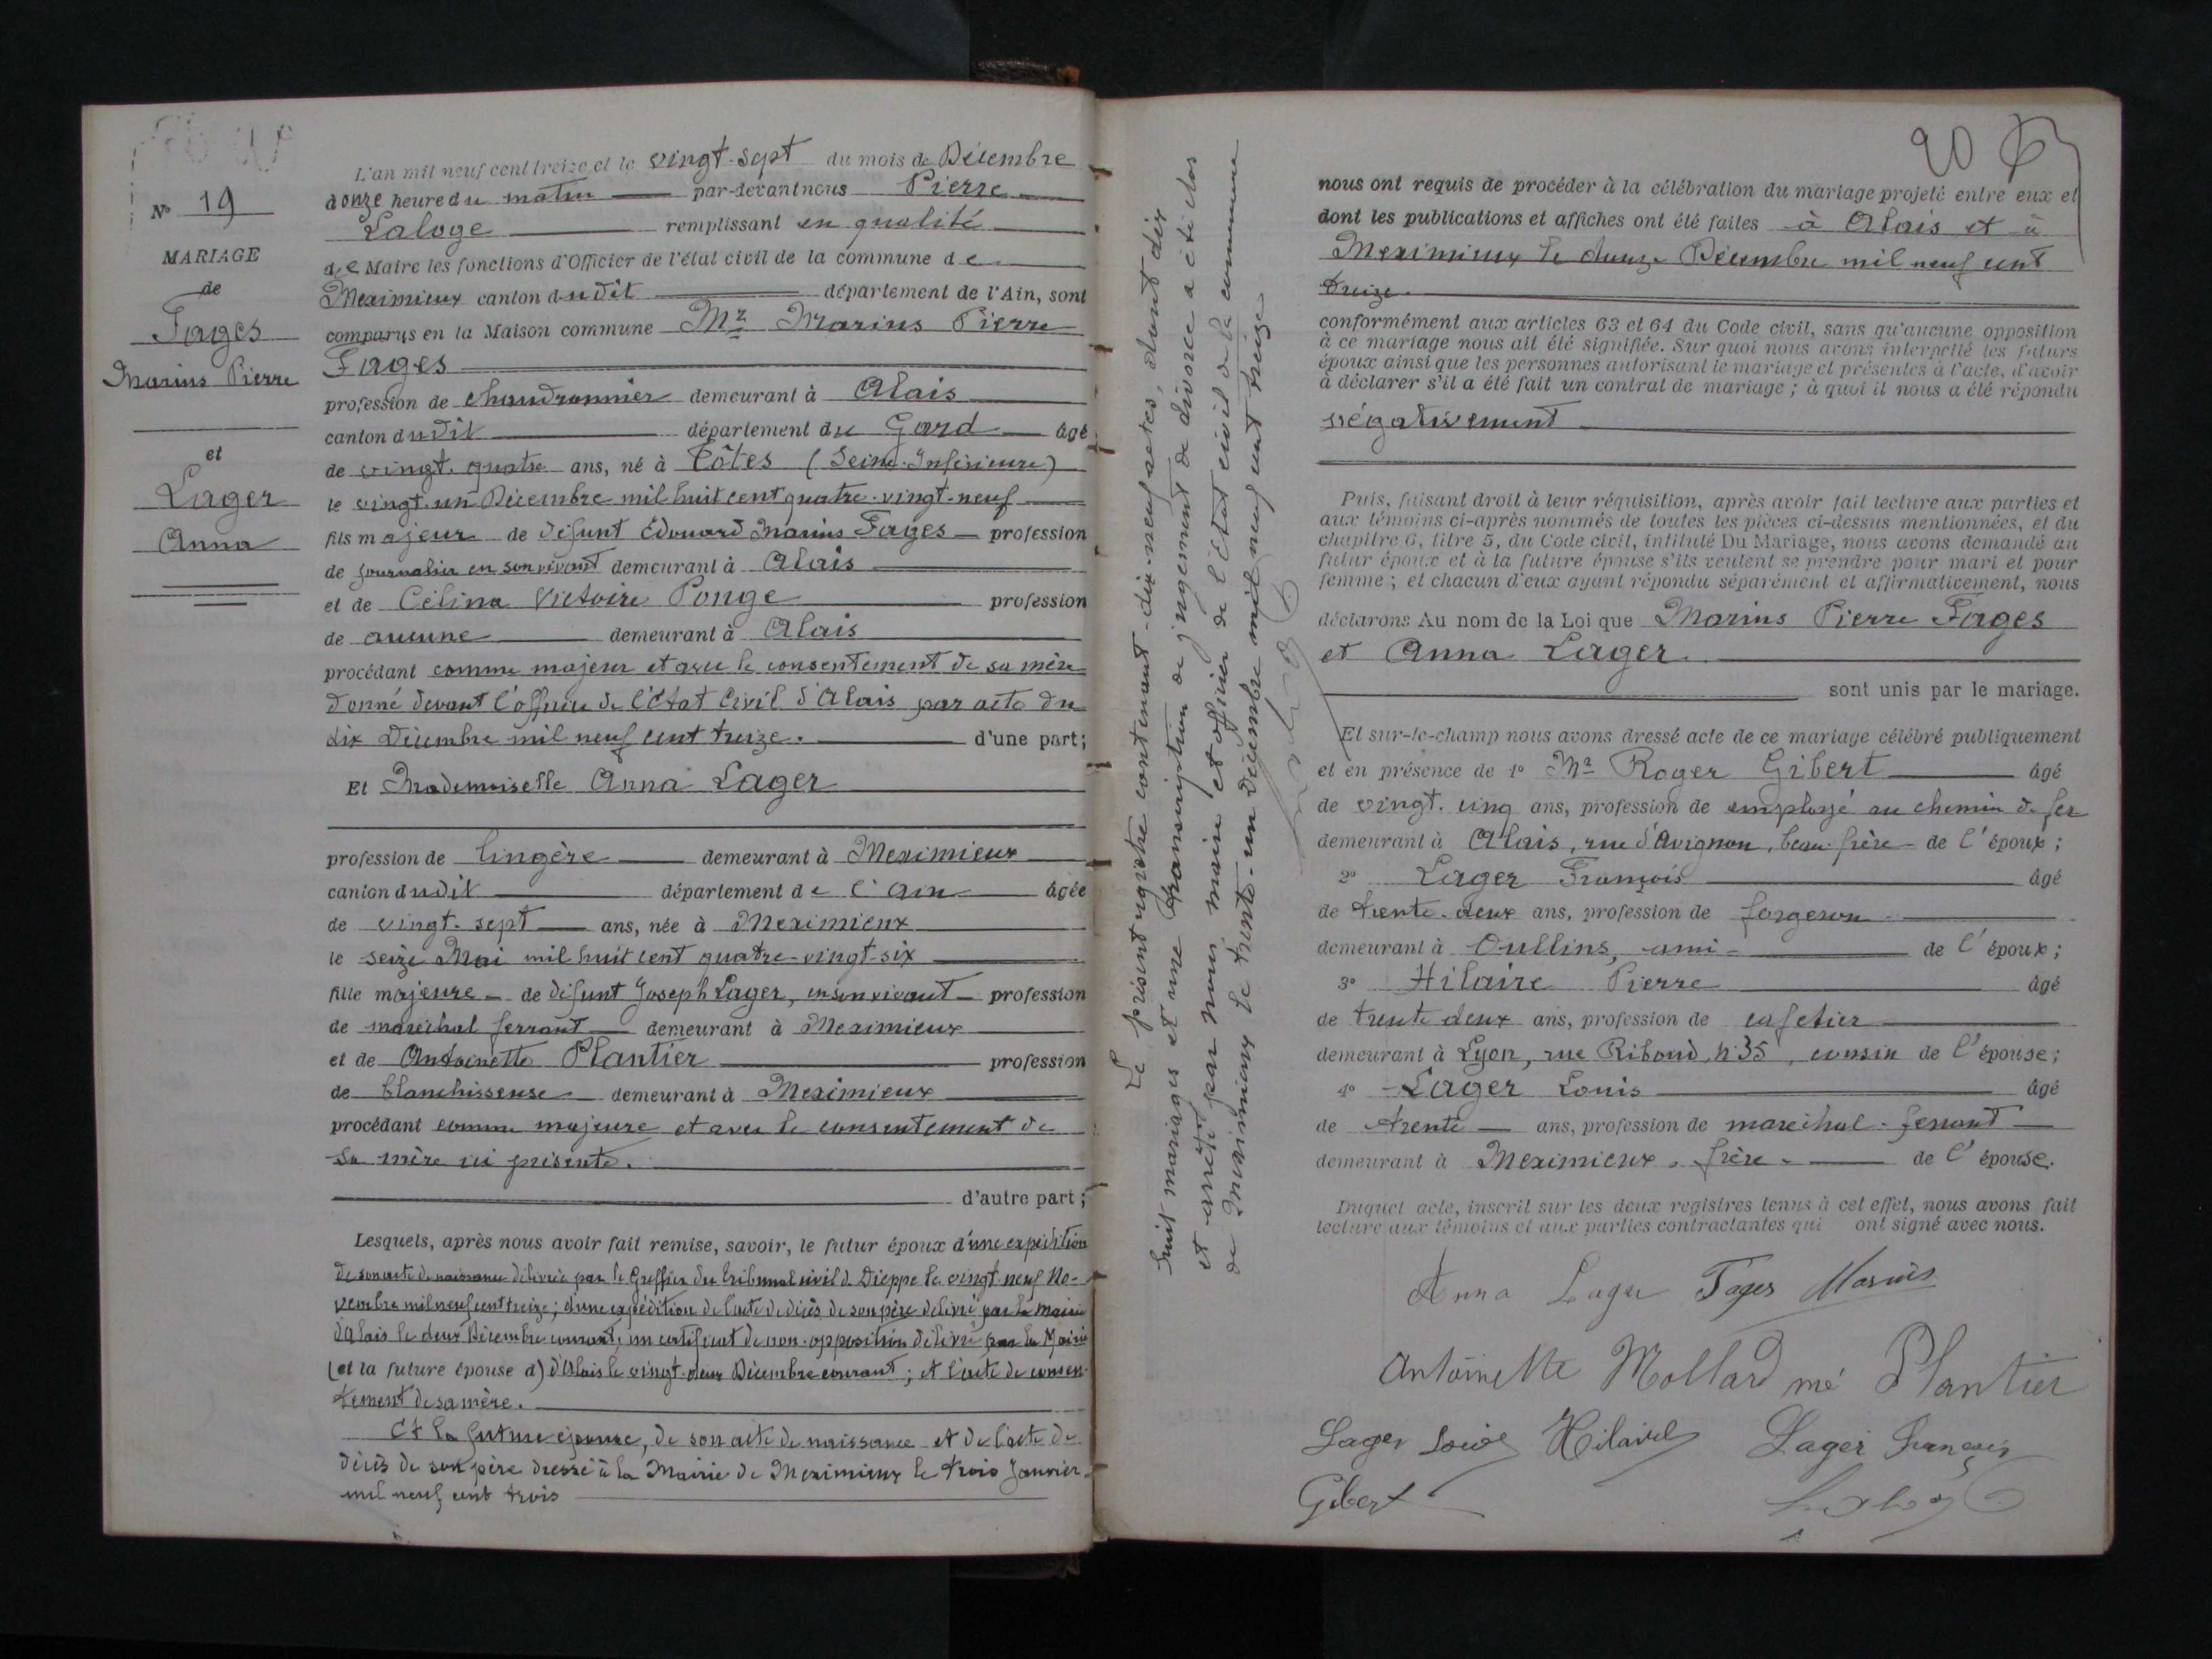 N° 19
MARIAGE
de
Fages
Marius Pierre
et
Lager
Anna
L'an mil neuf cent treize et le vingt-sept du mois de Décembre
à onze heure du matin par-devant nous Pierre
Laloge remplissant en qualité
de Maire les fonctions d'Officier de l'état civil de la commune de
Meximieux canton dudit département de l'Ain, sont
comparus en la Maison commune Mr Marius Pierre
Fages
profession de chaudronnier demeurant à Alais
canton dudit département du Gard âgé
de vingt-quatre ans, né à Tôtes (Seine-Inférieure)
le vingt-un Décembre mil huit cent quatre-vingt-neuf
fils majeur de défunt Edouard Marius Fages profession
de journalier en son vivant demeurant à Alais
et de Célina Victoire Ponge profession
de aucune demeurant à Alais
procédant comme majeur et avec le consentement de sa mère
donné devant l'officier de l'Etat Civil d'Alais par acte du
dix Décembre mil neuf cent treize. d'une part;
Et Mademoiselle Anna Lager
profession de lingère demeurant à Meximieux
canton dudit département de l'Ain âgée
de vingt-sept ans, née à Meximieux
le seize Mai mil huit cent quatre-vingt-six
fille majeure de défunt Joseph Lager, en son vivant profession
de maréchal ferrant demeurant à Meximieux
et de Antoinette Plantier profession
de blanchisseuse demeurant à Meximieux
procédant comme majeure et avec le consentement de
sa mère ici présente.
d'autre part;
Lesquels, après nous avoir fait remise, savoir, le futur époux d'une expédition
de son acte de naissance délivrée par le Greffier du Tribunal civil de Dieppe le vingt-neuf No-
vembre mil neuf cent treize; d'une expédition de l'acte de décès de son père délivré par la Mairie
d'Alais le deux Décembre courant, un certificat de non-opposition délivré par la Mairie
(et la future épouse d) d'Alais le vingt-deux Décembre courant; et l'acte de consen-
tement de sa mère.
Et la future épouse, de son acte de naissance et de l'acte de
décès de son père dressé à la Mairie de Meximieux le trois Janvier
mil neuf cent trois
Le présent registre contenant dix-neuf actes, dont dix
huit mariages et une transcription de jugement de divorce a été clos
et arrêté par nous maire et officier de l'état civil de la commune
de Meximieux le trente-un Décembre mil neuf cent treize
Laloge
20
nous ont requis de procéder à la célébration du mariage projeté entre eux et
dont les publications et affiches ont été faites à Alais et à
Meximieux le douze Décembre mil neuf cent
treize.
conformément aux articles 63 et 64 du Code civil, sans qu'aucune opposition
à ce mariage nous ait été signifiée. Sur quoi nous avons interpellé les futurs
époux ainsi que les personnes autorisant le mariage et présentes à l'acte, d'avoir
à déclarer s'il a été fait un contrat de mariage; à quoi il nous a été répondu
négativement
Puis, faisant droit à leur réquisition, après avoir fait lecture aux parties et
aux témoins ci-après nommés de toutes les pièces ci-dessus mentionnées, et du
chapitre 6, titre 5, du Code civil, intitulé Du Mariage, nous avons demandé au
futur époux et à la future épouse s'ils veulent se prendre pour mari et pour
femme; et chacun d'eux ayant répondu séparément et affirmativement, nous
déclarons Au nom de la Loi que Marius Pierre Fages
et Anna Lager.
sont unis par le mariage.
Et sur-le-champ nous avons dressé acte de ce mariage célébré publiquement
et en présence de 1° Mr Roger Gibert âgé
de vingt-cinq ans, profession de employé au chemin de fer
demeurant à Alais, rue d'Avignon, beau-frère de l'époux;
2° Lager François âgé
de trente-deux ans, profession de forgeron
demeurant à Oullins, ami de l'époux;
3° Hilaire Pierre âgé
de trente deux ans, profession de cafetier
demeurant à Lyon, rue Riboud, n°35, cousin de l'épouse;
4° Lager Louis âgé
de trente ans, profession de maréchal-ferrant
demeurant à Meximieux, frère de l'épouse.
Duquel acte, inscrit sur les deux registres tenus à cet effet, nous avons fait
lecture aux témoins et aux parties contractantes qui ont signé avec nous.
Anna Lager Fages Marius
Antoinette Mollard né Plantier
Lager Louis Hilaire Lager François
Gibert Laloge